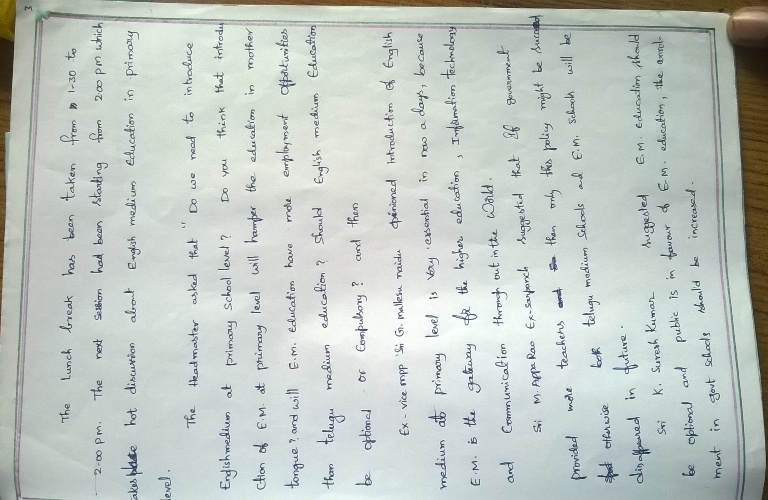 3
The Lunch break has been taken from 1-30 to
2-00 P.M. The next session had been starting from 2:00 P.M which
takes place hot discussion about English medium Education in primary
level.
The Headmaster asked that "Do we need to introduce
English medium at primary school level? Do you think that introdu
ction of E.M. at primary level will hamper the education in mother
tongue? and will E.M. education have more employment opportunities
than telugu medium education? Should English medium Education
be optional or Compulsory? and then
Ex-vice mpp Sri G. Mallesu naidu opinioned Introduction of English
medium at primary level is very essential in now a days, because
E.M. is the gateway for the higher education, Information Technology
and Communication through out in the World.
Sri M. Appa Rao Ex-sarpanch suggested that If government
provided more teachers then only this policy might be succeed
otherwise both telugu medium schools and E.M. Schools will be
disappeared in future.
Sri K. Suresh Kumar suggested E.M. education should
be optional and public is in favour of E.M. education, the enrol-
ment in govt schools should be increased.